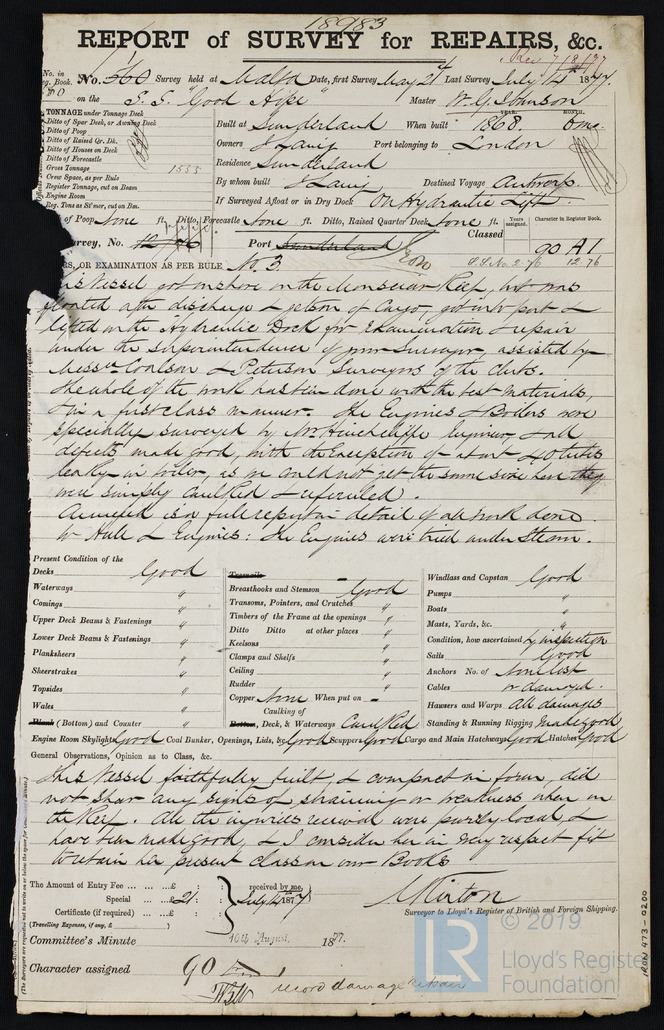 18983
REPORT of SURVEY for REPAIRS, &c.
Rec 7/8/77
No. in Reg. Book. No. 560 Survey held at Malta Date, first Survey May 21st Last Survey July 14th 1877.
on the S.S. "Good Hope" Master W. G. Johnson
TONNAGE under Tonnage Deck
Ditto of Spar Deck, or Awning Deck
Ditto of Poop
Ditto of Raised Qr. Dk.
Ditto of Houses on Deck
Ditto of Forecastle
Gross Tonnage 1555
Crew Space, as per Rule
Register Tonnage, cut on Beam
Engine Room
Reg. Tons as St'mer, cut on Bm.
Built at Sunderland When built YEAR. 1868. MONTH. 6mo.
Owners J Laing Port belonging to London
Residence Sunderland
By whom built J Laing Destined Voyage Antwerp.
If Surveyed Afloat or in Dry Dock On Hydraulic Lift.
of Poop None ft. Ditto, Forecastle None ft. Ditto, Raised Quarter Deck None ft. Years assigned. Character in Register Book.
Survey, No. Port Sunderland Classed 90 A1
S.S. No. 2-76 12.76
RS, OR EXAMINATION AS PER RULE No. 3.
This Vessel got onshore on the Monsciar Reef, but was
floated after discharge & jetson of Cargo, got into port &
lifted on the Hydraulic Dock for Examination & repair
under the superintendence of your Surveyor assisted by
Messrs Coulson & Peterson Surveyors of the Clubs.
The whole of the work has been done with the best materials,
& in a first class manner. The Engines & Boilers were
specially surveyed by Mr Hinchcliffe Engineer, & all
defects made good, with the exception of about 40 tubes
leaky in boiler, as we could not get the same size here they
were simply caulked & referuled.
Annexed is a full report in detail of all work done
to Hull & Engines: The Engines were tried under Steam.
Present Condition of the
Decks Good
Waterways "
Comings "
Upper Deck Beams & Fastenings "
Lower Deck Beams & Fastenings "
Planksheers "
Sheerstrakes "
Topsides "
Wales "
Plank (Bottom) and Counter "
Treenails –
Breasthooks and Stemson Good
Transoms, Pointers, and Crutches "
Timbers of the Frame at the openings "
Ditto Ditto at other places "
Keelsons "
Clamps and Shelfs "
Ceiling "
Rudder "
Copper None When put on –
Caulking of
Bottom, Deck, & Waterways Caulked
Windlass and Capstan Good
Pumps "
Boats "
Masts, Yards, &c. "
Condition, how ascertained by inspection
Sails Good
Anchors No. of None lost
Cables or damaged.
Hawsers and Warps All damages
Standing & Running Rigging made good
Engine Room Skylights Good Coal Bunker, Openings, Lids, &c. Good Scuppers Good Cargo and Main Hatchways Good Hatches Good
General Observations, Opinion as to Class, &c.
This Vessel faithfully built, & compact in form, did
not shew any signs of straining or weakness when on
the Reef. All the injuries received were purely local, &
have been made good, & I consider her in every respect fit
to retain her present class in our Books
The Amount of Entry Fee ... ... £ : : received by me,
Special ... £21 : : July 14 1877
Certificate (if required) ... £ : :
(Travelling Expenses, if any, £ )
Surveyor to Lloyd's Register of British and Foreign Shipping.
Committee's Minute 10th August, 1877.
Character assigned 90
record damage repair
© 2019
LR Lloyd's Register
Foundation
IRON 473-0200